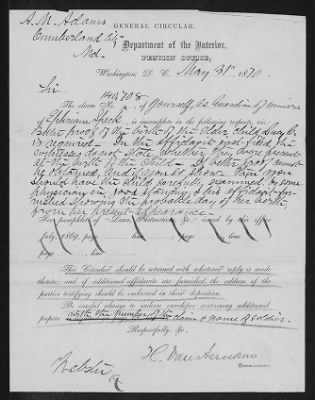 A. M. Adams
GENERAL CIRCULAR.
Cumberland City
Md.
Department of the Interior,
PENSION OFFICE,
Washington, D. C., May 31st, 1870.
Sir
140,708
The claim No. of Yourself, as Guardian of minors
of Ephraim is incomplete in the following respects, viz:
Better proof of the birth of the elder child
is required. In the affidavit filed the
witnesses do not state whether they were present
at the birth of the child. If better proof cannot
be obtained, and if you so show, then you
should have the child carefully examined by some
physician in good standing & his affidavit fur-
nished showing the probable day of her birth,
from her present appearance.
See paragraphs of "Laws, Instructions, &c." issued by this office
July, 1869, page , line
page , line
This Circular should be returned with whatever reply is made
thereto; and if additional affidavits are furnished, the address of the
parties testifying should be embraced in their deposition.
Be careful, always to indorse envelopes containing additional
papers with the number of the claim & name of soldier.
Respectfully, &c.
H. Van Aernam
Commissioner.
Webster